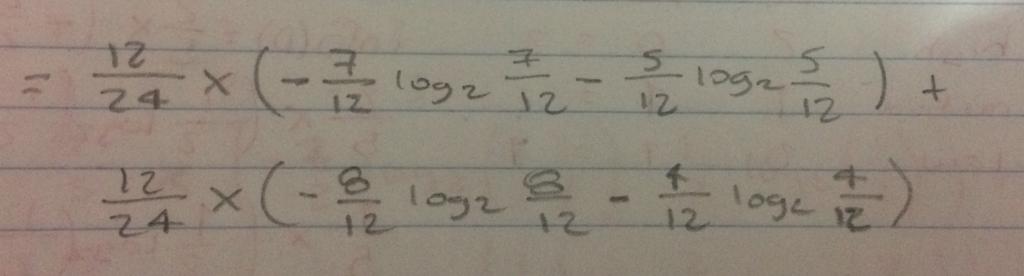 = 12/24 × (- 7/12 log₂ 7/12 - 5/12 log₂ 5/12) +
12/24 × (- 8/12 log₂ 8/12 - 4/12 log₂ 4/12)